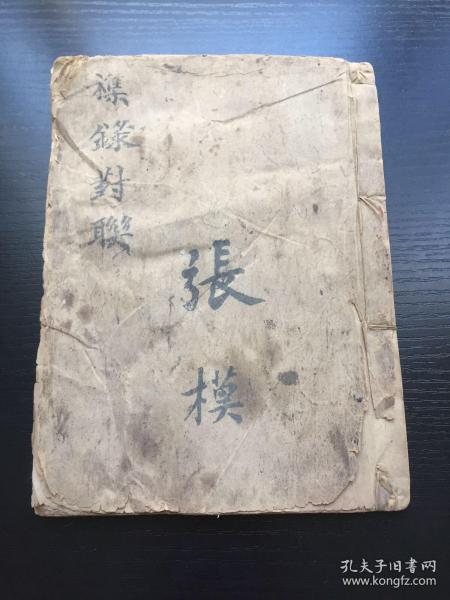 襍錄對聯
張模
孔夫子旧书网
www.kongfz.com